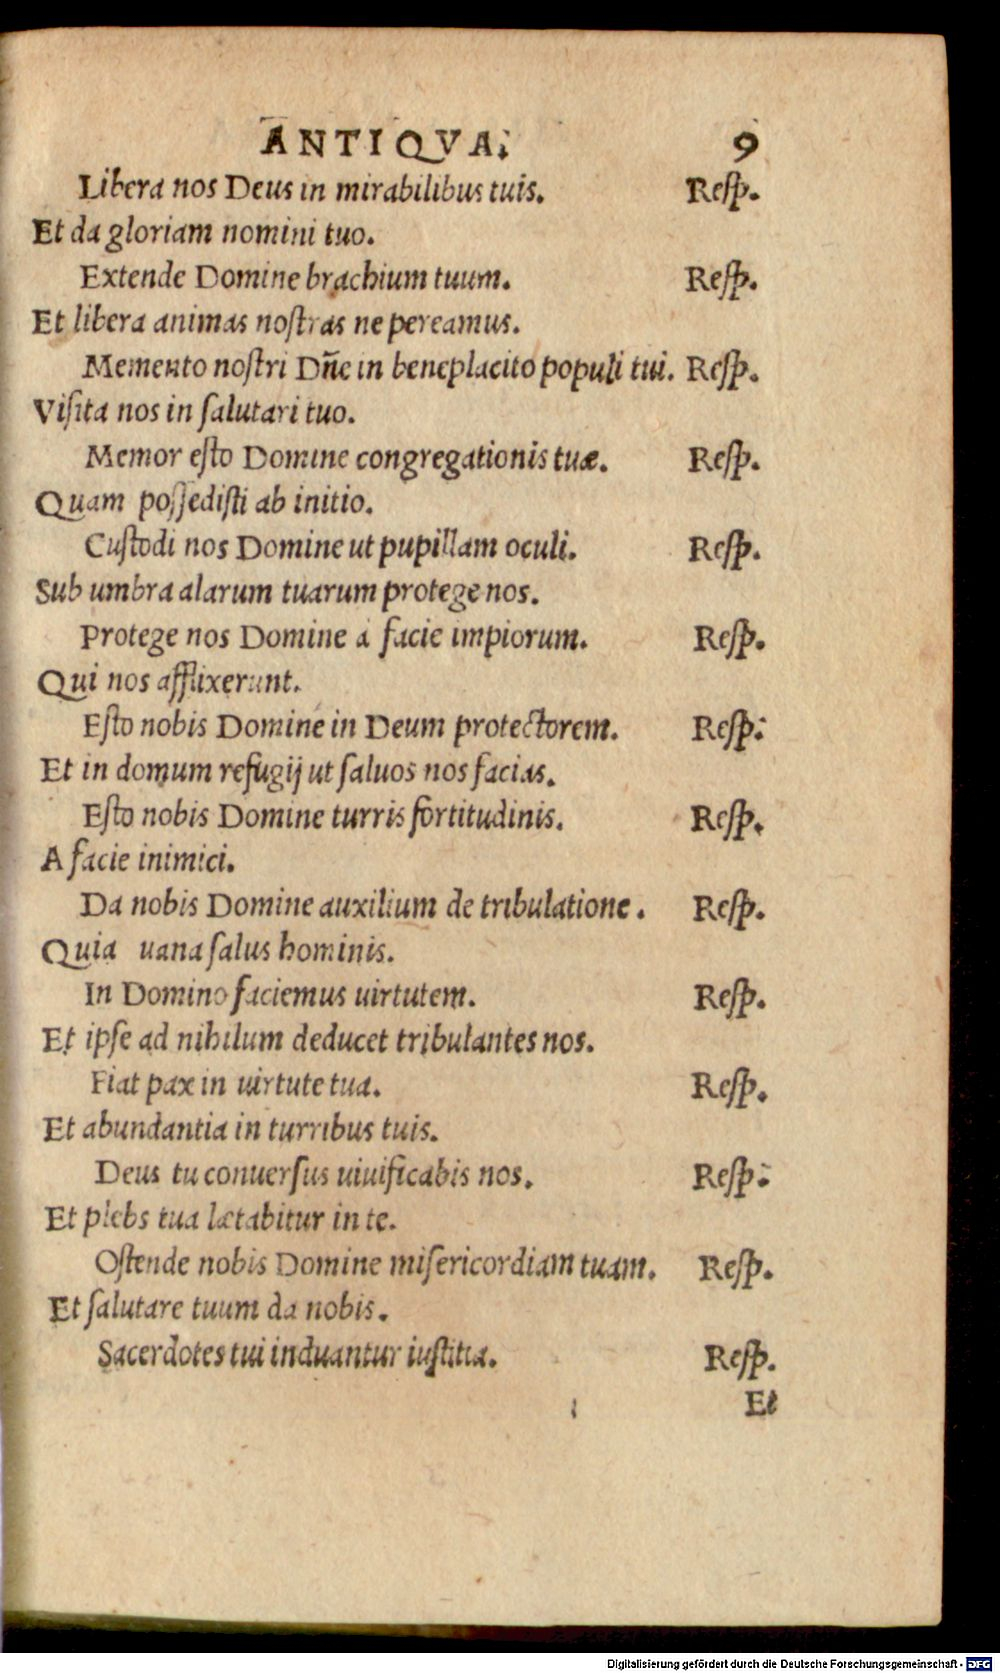 ANTIQVA. 9
Libera nos Deus in mirabilibus tuis. Resp.
Et da gloriam nomini tuo.
Extende Domine brachium tuum. Resp.
Et libera animas nostras ne pereamus.
Memento nostri Dñe in beneplacito populi tui. Resp.
Visita nos in salutari tuo.
Memor esto Domine congregationis tuæ. Resp.
Quam possedisti ab initio.
Custodi nos Domine ut pupillam oculi. Resp.
Sub umbra alarum tuarum protege nos.
Protege nos Domine à facie impiorum. Resp.
Qui nos afflixerunt.
Esto nobis Domine in Deum protectorem. Resp.
Et in domum refugij ut saluos nos facias.
Esto nobis Domine turris fortitudinis. Resp.
A facie inimici.
Da nobis Domine auxilium de tribulatione. Resp.
Quia uana salus hominis.
In Domino faciemus uirtutem. Resp.
Et ipse ad nihilum deducet tribulantes nos.
Fiat pax in uirtute tua. Resp.
Et abundantia in turribus tuis.
Deus tu conuersus uiuificabis nos. Resp.
Et plebs tua lætabitur in te.
Ostende nobis Domine misericordiam tuam. Resp.
Et salutare tuum da nobis.
Sacerdotes tui induantur iustitia. Resp.
Et
Digitalisierung gefördert durch die Deutsche Forschungsgemeinschaft - DFG